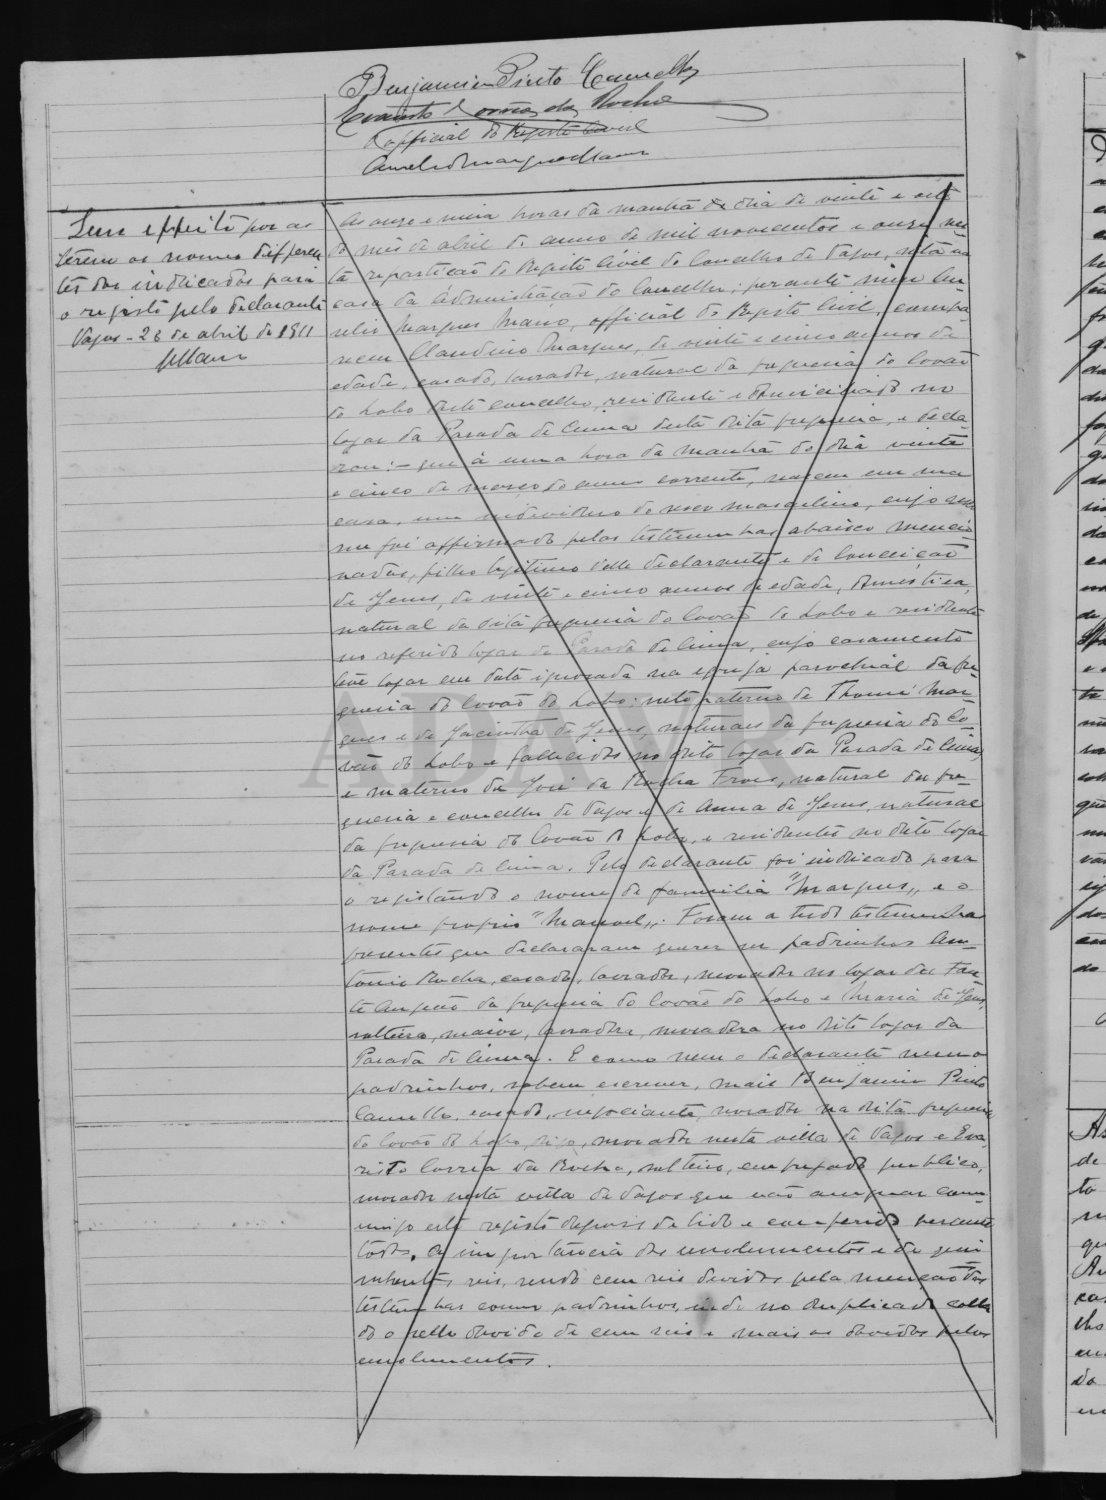 Benjamim Pinto Camello
Evaristo Corrêa da Rocha
O official do Registo Civil
Aurelio Marques Mano
Sem effeito por as
serem os nomes differen
tes dos indicados para
o registo pelo declarante
Vagos - 28 de abril de 1911
Mano
Ás onze e meia horas da manhã do dia de vinte e oito
do mês de abril do anno de mil novecentos e onze nes
ta repartição do Registo Civil do Concelho de Vagos, sita na
casa da Administração do Concelho; perante mim Au
relio Marques Mano, official do Registo Civil, compa-
receu Claudino Marques, de vinte e cinco annos de
edade, casado, lavrador, natural da freguesia do Covão
do Lobo deste concelho, residente e domiciliado no
logar da Parada de Cima desta dita freguesia, e decla
rou: - que á uma hora da manhã do dia vinte
e cinco de março do anno corrente, nasceu em sua
casa, um individuo do sexo masculino, cujo sexo
me foi affirmado pelas testemunhas abaixo mencio-
nadas, filho legitimo delle declarante e de Conceição
de Jesus, de vinte e cinco annos de edade, domestica,
natural da dita freguesia do Covão do Lobo e residente
no referido logar da Parada de Cima, cujo casamento
teve logar em data ignorada na egreja parochial da fre
guesia do Covão do Lobo; neto paterno de Thomé Mar-
ques e de Jacintha de Jesus, naturaes da freguesia do Co-
vão do Lobo e fallecidos no dito logar da Parada de Cima,
e materno de José da Rocha Frois, natural da fre-
guesia e concelho de Vagos e de Anna de Jesus, natural
da freguesia do Covão do Lobo, e residentes no dito logar
da Parada de Cima. Pelo declarante foi indicado para
o registando o nome de familia "Marques" e o
nome proprio "Manoel". Foram a tudo testemunhas
presentes que declararam querer ser padrinhos An-
tonio Rocha, casado, lavrador, morador no logar da Fon
te Angeão da freguesia do Covão do Lobo e Maria de Jesus,
solteira, maior, lavradora, moradora no dito logar da
Parada de Cima. E como nem o declarante nem o
padrinhos, sabem escrever, mais Benjamim Pinto
Camello, casado, negociante, morador na dita freguesia
do Covão do Lobo, digo, morador nesta villa de Vagos e Eva
risto Corrêa da Rocha, solteiro, empregado publico,
morador nesta villa de Vagos que vão assignar com-
migo este registo depois de lido e conferido perante
todos. A importancia dos emolumentos é de qui
nhentos reis, sendo cem reis devidos pela menção das
testemunhas como padrinhos, indo no duplicado colla
do o sello devido de cem reis e mais os devidos pelos
emolumentos.
ADAVR